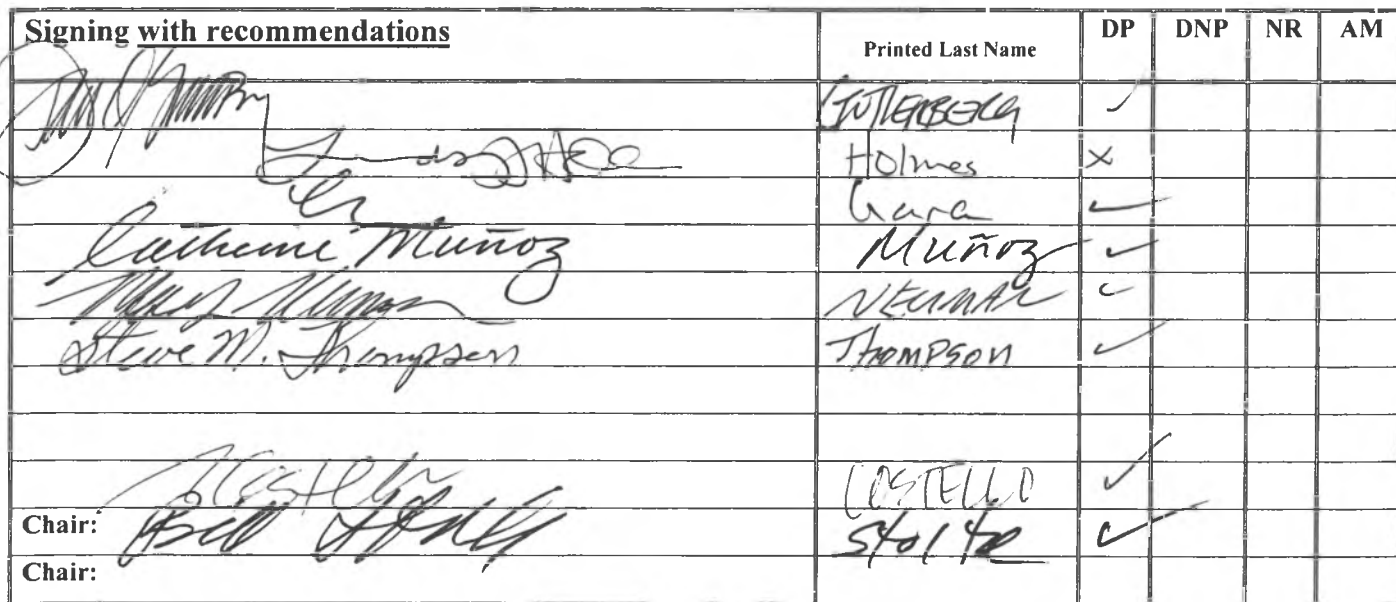 Signing with recommendations Printed Last Name DP DNP NR AM
GUTTENBERG ✓
Holmes ×
Gara ✓
Catherine Muñoz Muñoz ✓
NEUMAN ✓
Steve M. Thompson THOMPSON ✓
Costello COSTELLO ✓
Chair: Bill Stoltze Stoltze ✓
Chair: